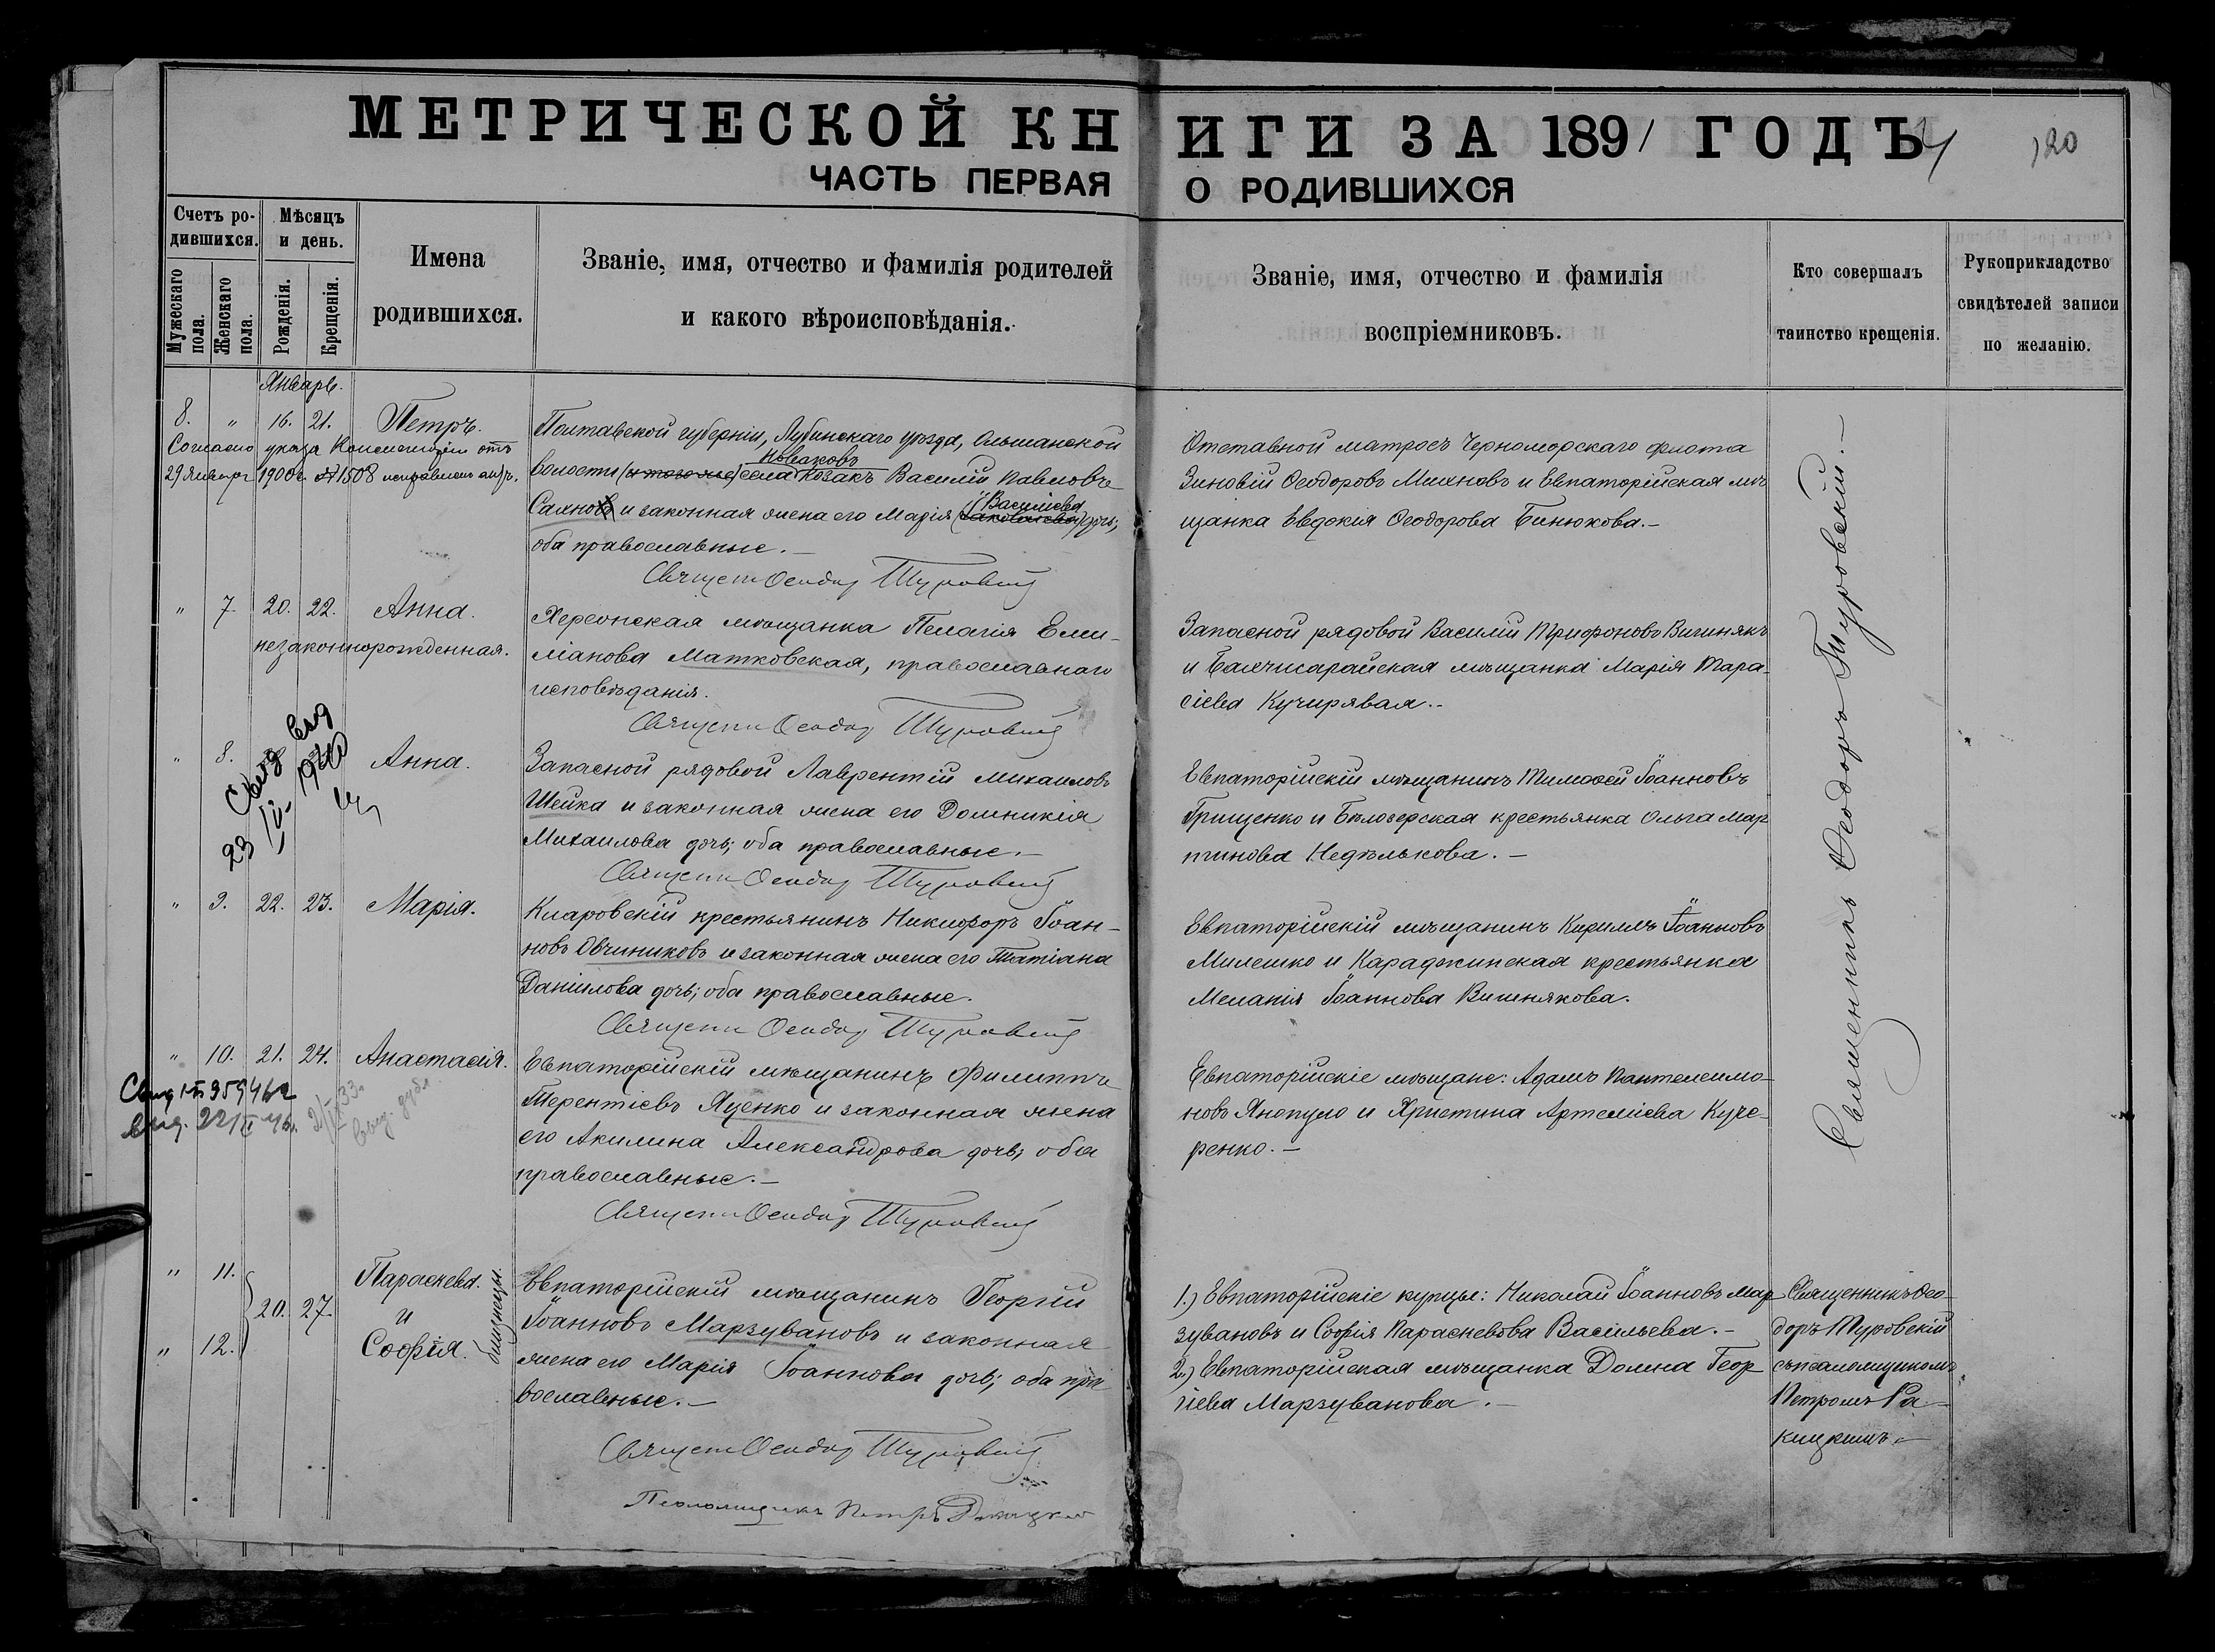 МЕТРИЧЕСКОЙ КНИГИ ЗА 1891 ГОДЪ
120
ЧАСТЬ ПЕРВАЯ О РОДИВШИХСЯ
Счетъ ро-
дившихся.
Мужескаго
пола.
Женскаго
пола.
Мѣсяцъ
и день.
Рожденія.
Крещенія.
Имена
родившихся.
Званіе, имя, отчество и фамилія родителей
и какого вѣроисповѣданія.
Званіе, имя, отчество и фамилія
воспріемниковъ.
Кто совершалъ
таинство крещенія.
Рукоприкладство
свидѣтелей записи
по желанію.
Январь.
8. " 16. 21. Петръ.
Согласно указа Консисторіи отъ
29 Января 1900 г. № 1508 исправленъ актъ.
Полтавской губерніи, Лубинскаго уѣзда, Ольшанской
волости (и того же) села козакъ Василій Павловъ
Сахновъ и законная жена его Марія Василіева дочь;
оба православные.
Священ Ѳеодор Туровскій
Отставной матросъ Черноморскаго флота
Зиновій Ѳеодоровъ Михновъ и Евпаторійская мѣ
щанка Евдокія Ѳеодорова Бинюкова.
" 7. 20. 22. Анна.
незаконнорожденная.
Херсонская мѣщанка Пелагія Еми-
ліанова Матковская, православнаго
исповѣданія.
Священ Ѳеодор Туровскій
Запасной рядовой Василій Трифоновъ Вишнякъ
и Бахчисарайская мѣщанка Марія Тара-
сіева Кучирявая.
" 8. Анна.
Свид выд
23 IV- 1940
Запасной рядовой Лаврентій Михаиловъ
Шейка и законная жена его Домникія
Михаилова дочь; оба православные.
Священ Ѳеодор Туровскій
Евпаторійскій мѣщанинъ Тимоѳей Іоанновъ
Грищенко и Бѣлозерская крестьянка Ольга Мар
тинова Недѣлькова.
" 9. 22. 23. Марія.
Кларовскій крестьянинъ Никифоръ Іоан-
новъ Овчиниковъ и законная жена его Татіана
Даніилова дочь; оба православные.
Священ Ѳеодор Туровскій
Евпаторійскій мѣщанинъ Кириллъ Іоанновъ
Милешко и Караджинская крестьянка
Меланія Іоаннова Вишнякова.
" 10. 21. 24. Анастасія.
Евпаторійскій мѣщанинъ Филиппъ
Терентіевъ Яценко и законная жена
его Акилина Александрова дочь; оба
православные.
Священ Ѳеодор Туровскій
Евпаторійскіе мѣщане: Адамъ Пантелеимо-
новъ Янопуло и Христина Артеміева Куче-
ренко.
" 11. Параскева.
20. 27. и
" 12. Софія.
близнецы.
Евпаторійскій мѣщанинъ Георгій
Іоанновъ Марзувановъ и законная
жена его Марія Іоаннова дочь; оба пра
вославные.
Священ Ѳеодор Туровскій
Псаломщикъ Петръ Ракицкій
1.) Евпаторійскіе купцы: Николай Іоанновъ Мар
зувановъ и Софія Параскевова Васильева.
2.) Евпаторійская мѣщанка Домна Геор
гіева Марзуванова.
Священникъ Ѳеодоръ Туровскій.
Священникъ Ѳео
доръ Туровскій
съ псаломщикомъ
Петромъ Ра
кицкимъ